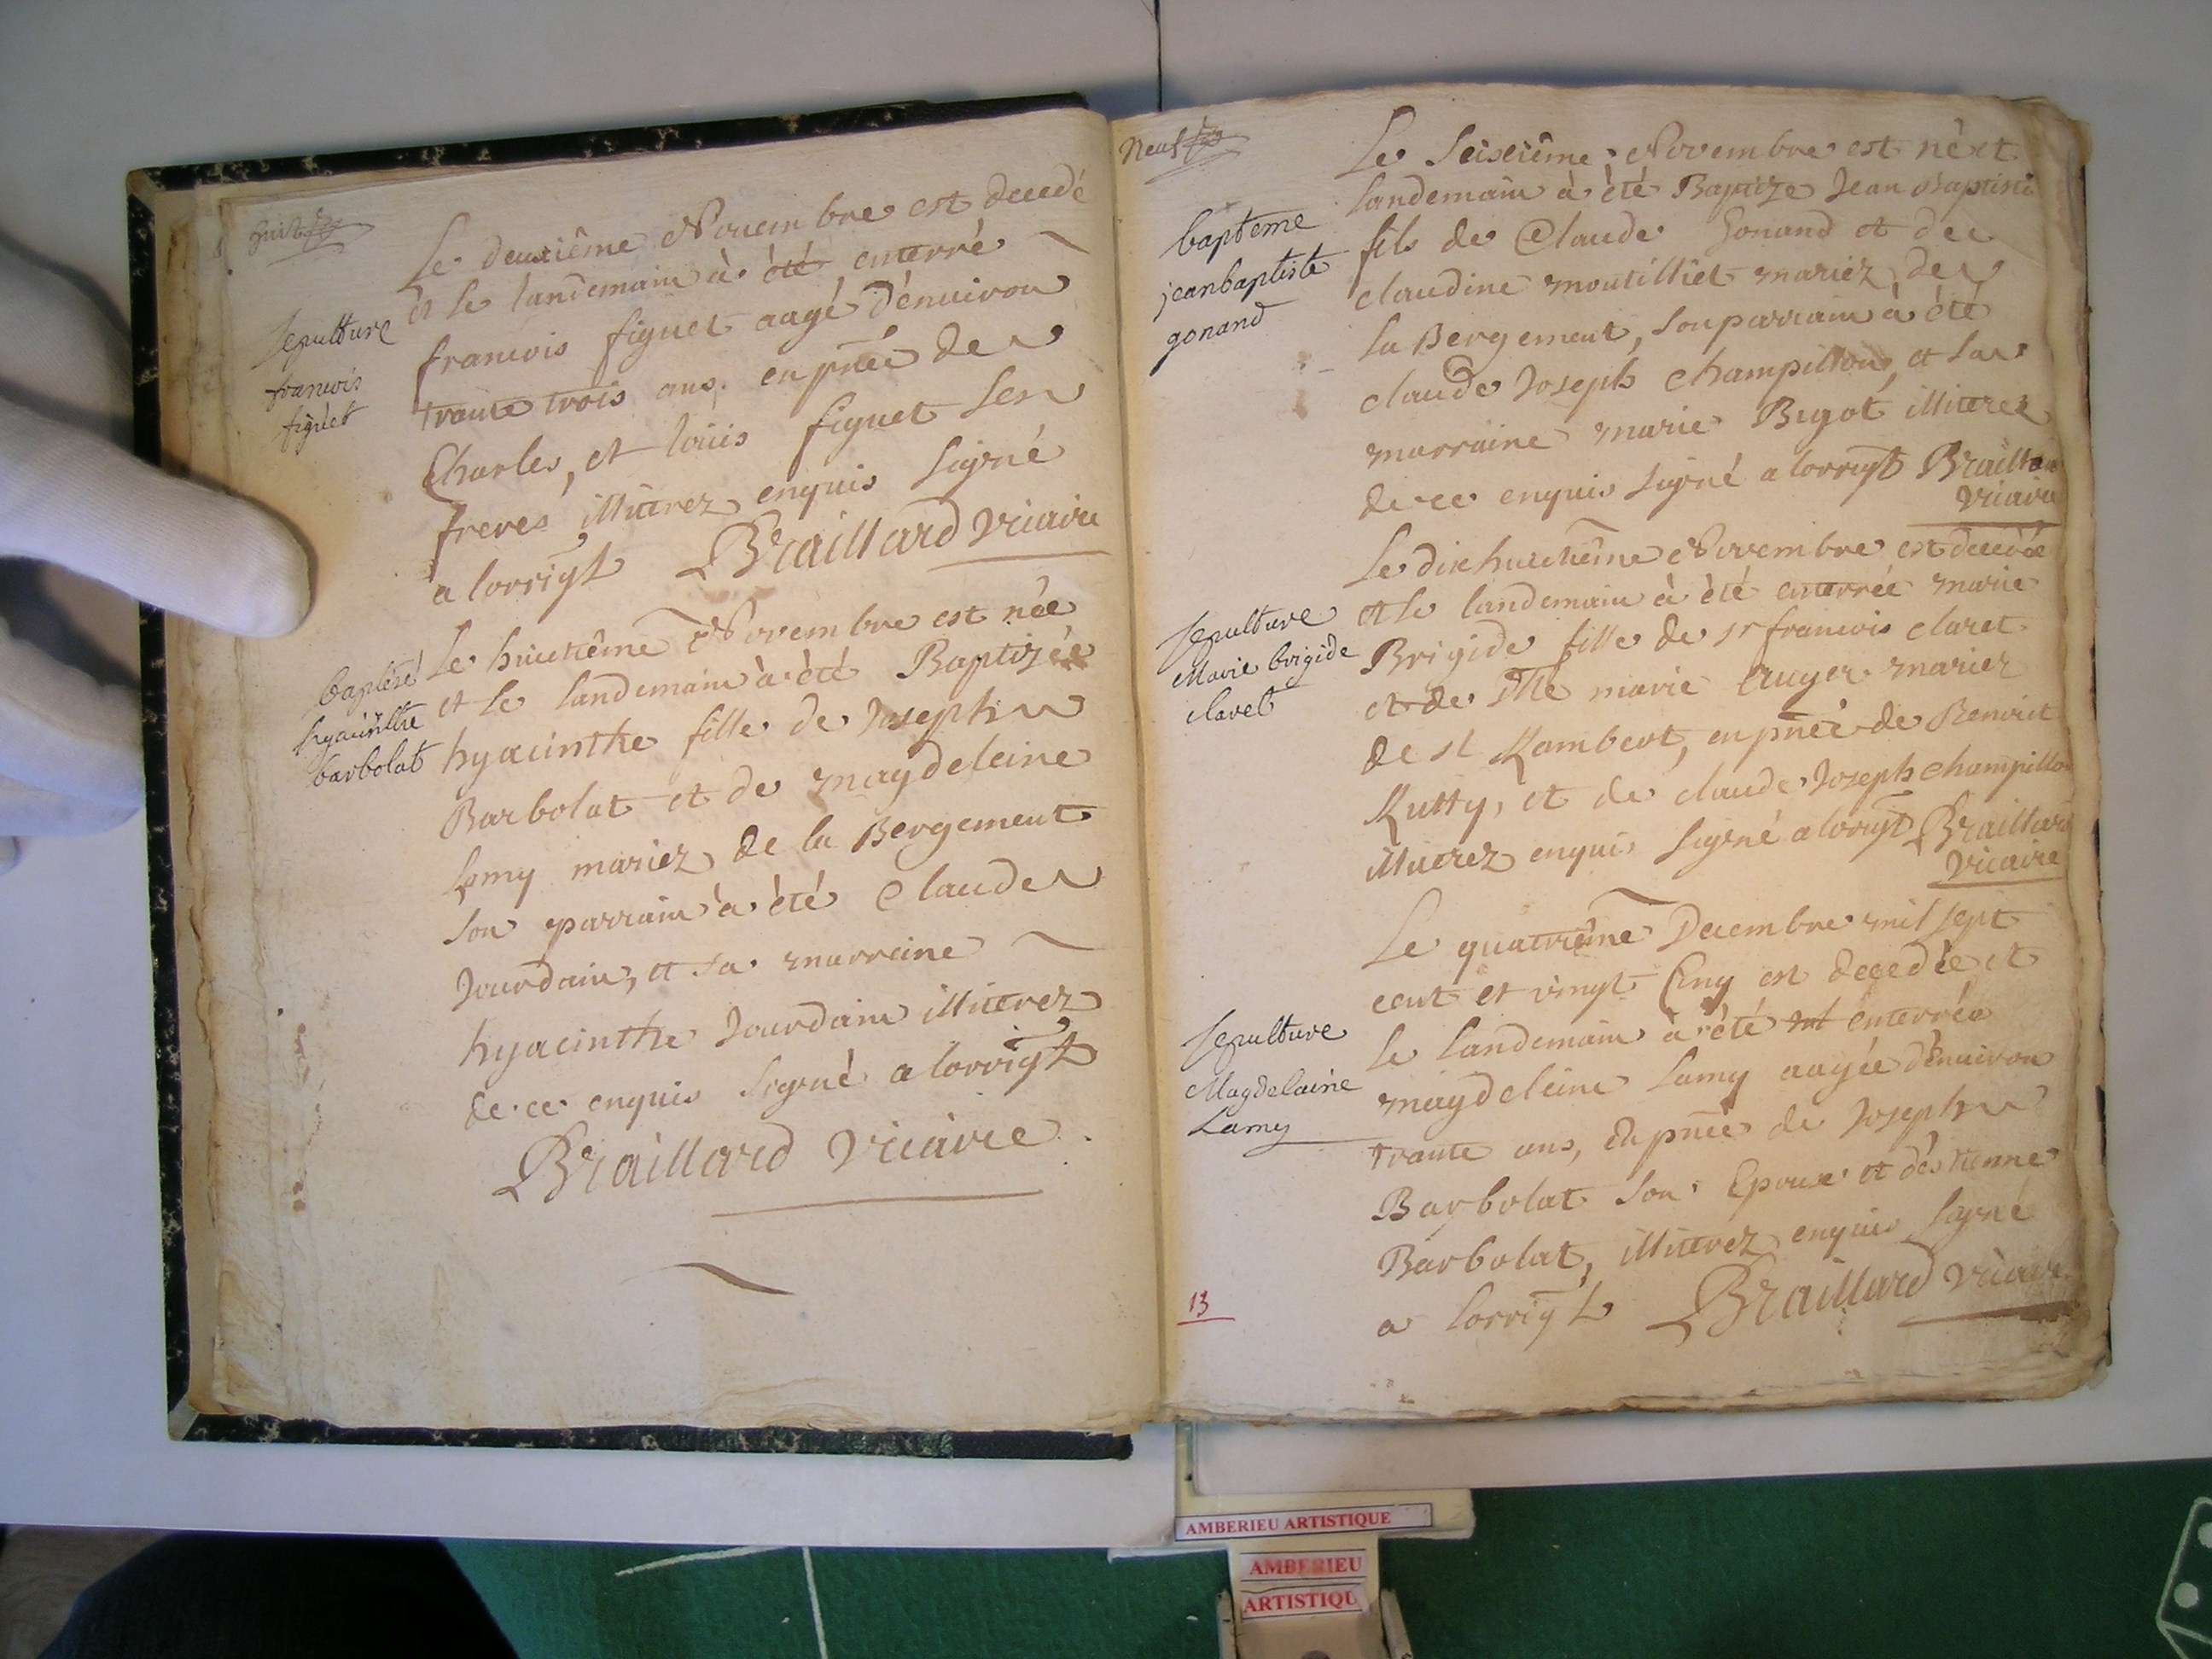 8 huit
Sepulture
francois
figuet
Le deuxiême Novembre est decedé
et le landemain à été enterré
francois figuet aagé d'enuiron
trante trois ans. en pñce de
Charles, et loüis figuet ses
freres illiterez enquis Signé
a lorrigl Braillard vicaire
baptesme
hyacinthe
barbolat
Le huictiême Novembre est née
et le landemain à été Baptizée
hyacinthe fille de Joseph
Barbolat et de magdeleine
Lamy mariez de la Bergement
Son parrain à été Claude
Jourdain, et sa marreine
hyacinthe Jourdain illiterez
de ce enquis Signé a lorrigl
Braillard vicaire
Neuf
bapteme
jean baptiste
gonand
Le Seiziême Novembre est né et
landemain à été Baptize Jean Baptiste
fils de Claude Gonand et de
claudine moutilliet mariez de
la Bergement, son parrain à été
claude Joseph Champillon, et sa
marraine marie Bigot illiterez
de ce enquis signé a lorrigl Braillard
vicaire
Sepulture
Marie brigide
claret
Le dix huictiême Novembre est decedée
et le landemain à été enterrée marie
Brigide fille de sr francois claret
et de Dlle marie Auger mariez
de st Rambert, en pñce de Benoict
Rutty, et de claude Joseph Champillon
illiterez enquis signé a lorrigl Braillard
vicaire
Sepulture
Magdelaine
Lamy
Le quatriême Decembre mil sept
cent et vingt Cinq est decedée et
le landemain à été enterrée
magdeleine Lamy aagée d'enuiron
trante ans, en pñce de Joseph
Barbolat son Epoux et d'estienne
Barbolat, illiterez enquis signé
a lorrigl Braillard vicaire
13
AMBERIEU ARTISTIQUE
AMBERIEU
ARTISTIQU